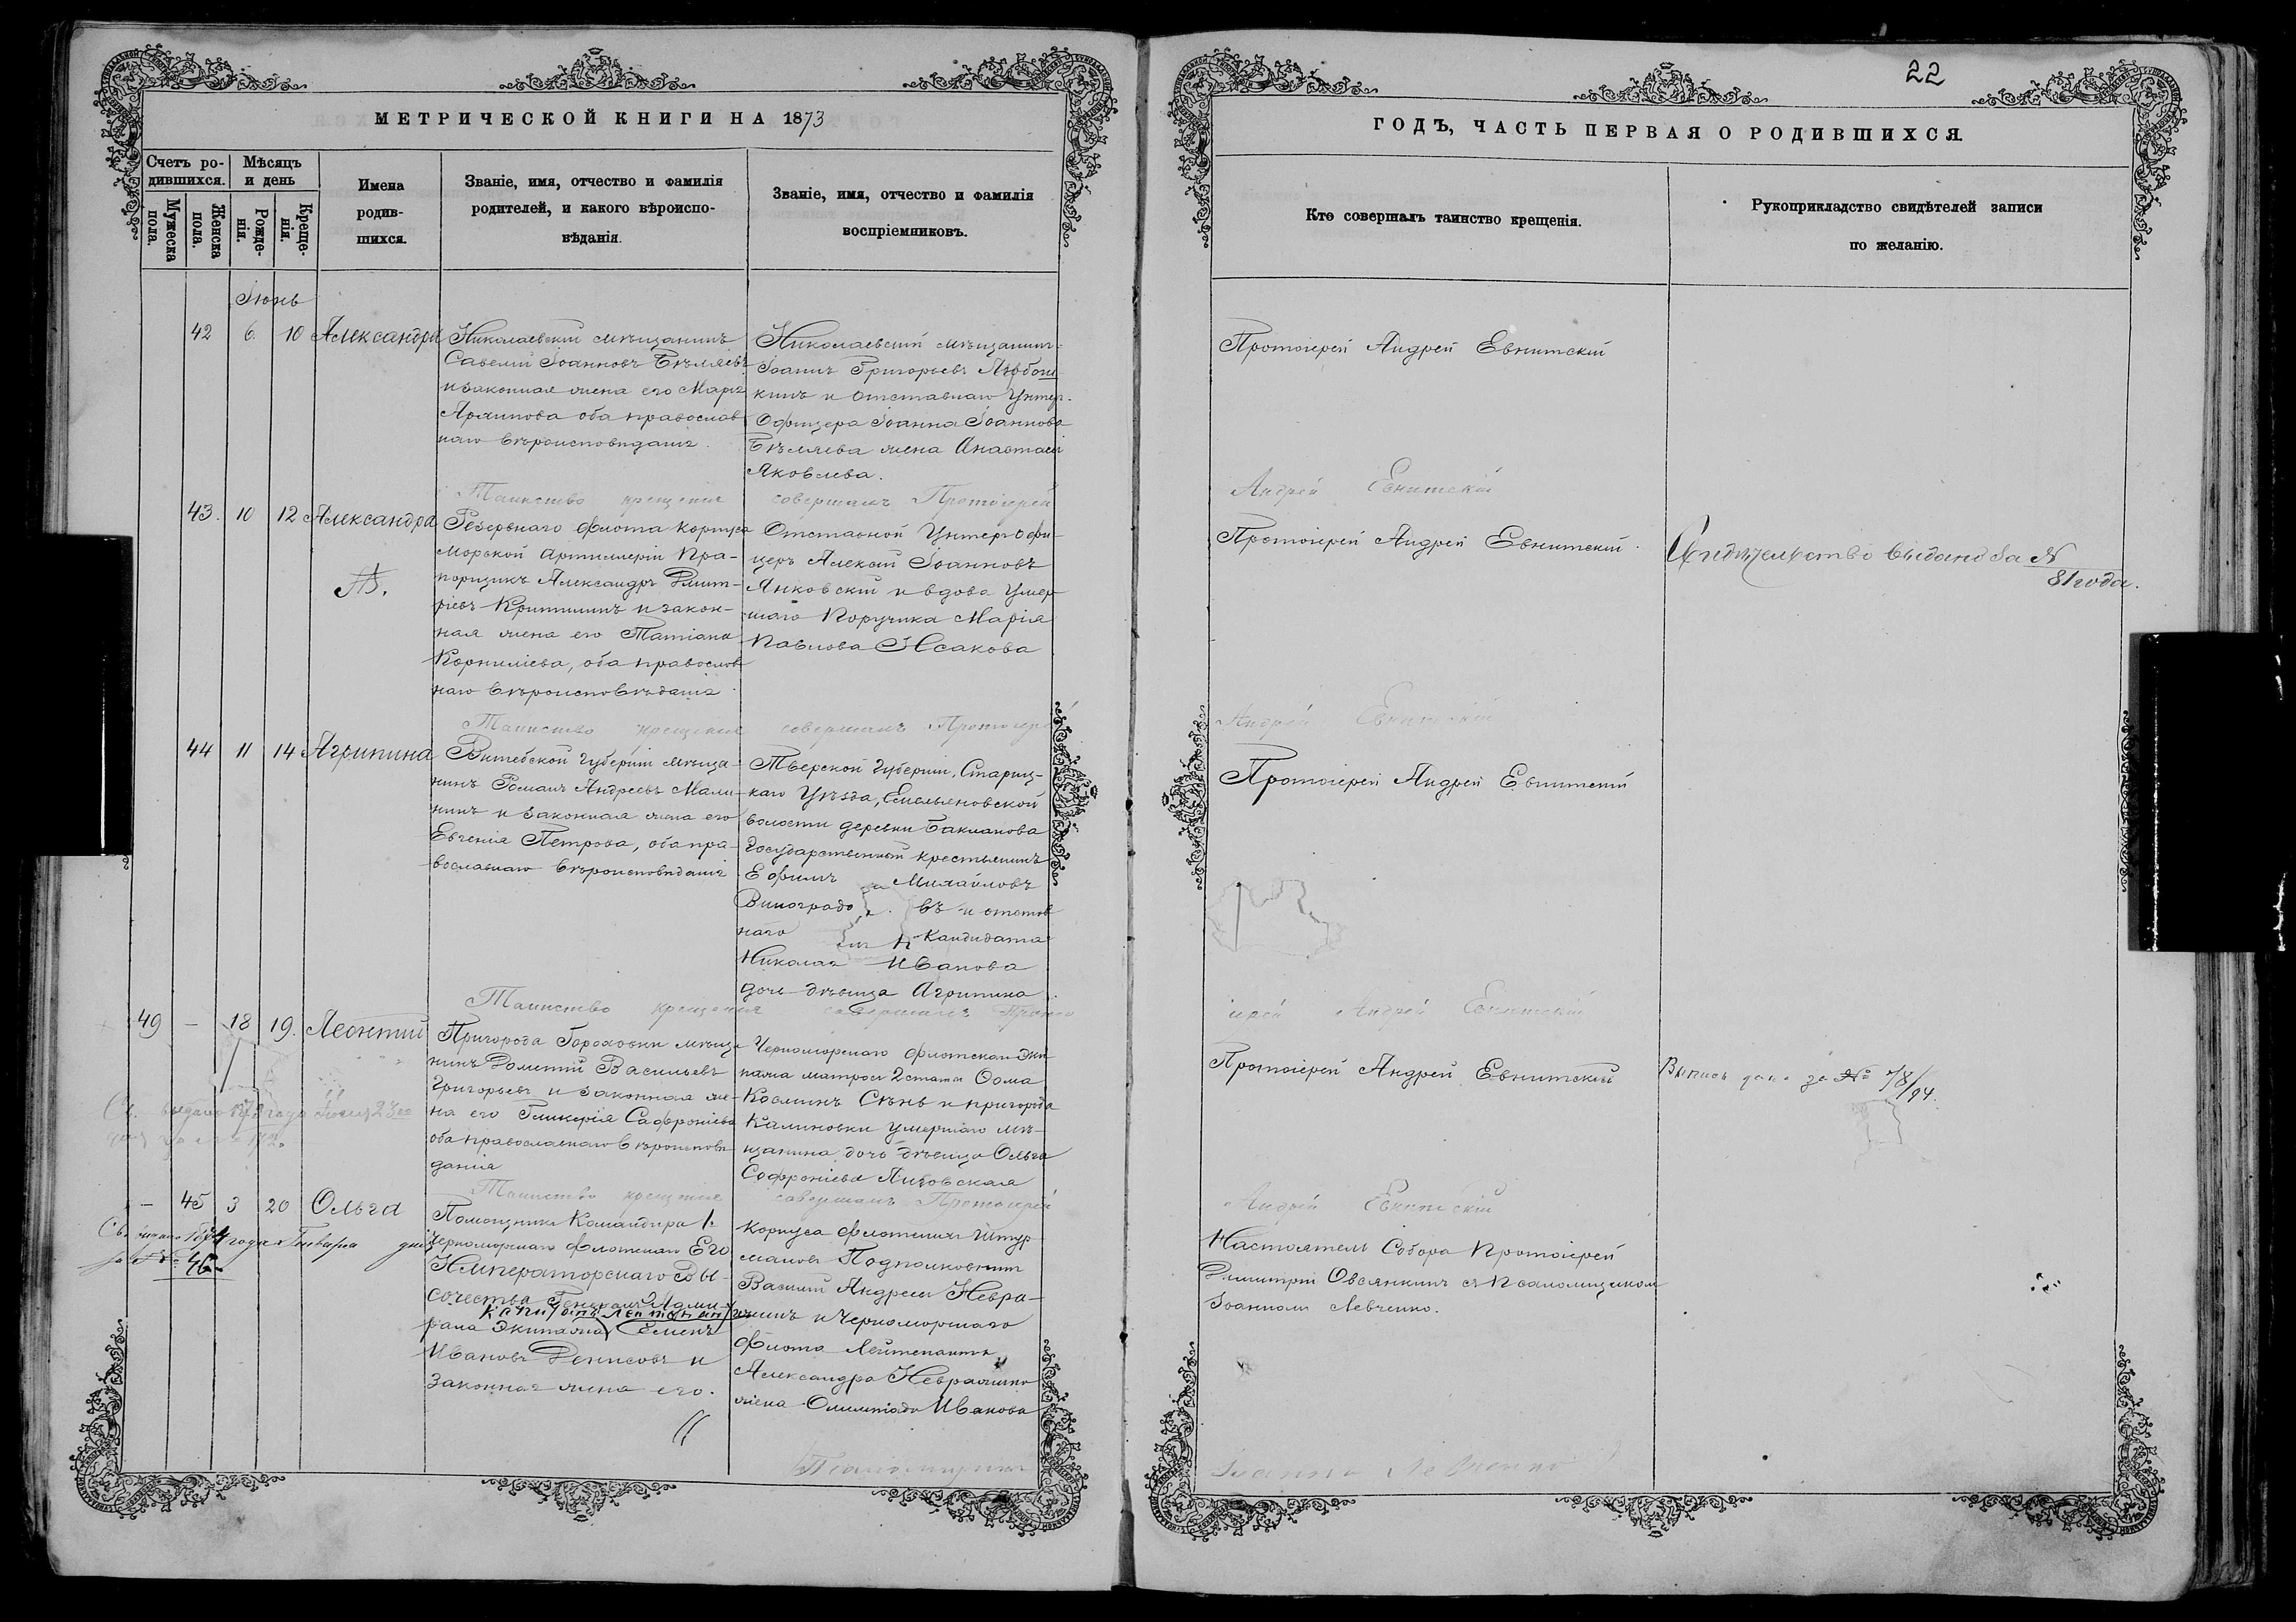 МЕТРИЧЕСКОЙ КНИГИ НА 1873
Счетъ ро-
дившихся.
Мѣсяцъ
и день
Мужеска
пола.
Женска
пола.
Рожде-
нія.
Креще-
нія.
Имена
родив-
шихся.
Званіе, имя, отчество и фамилія
родителей, и какого вѣроиспо-
вѣданія.
Званіе, имя, отчество и фамилія
воспріемниковъ.
Іюнь
42 6 10 Александра
Николаевскій мѣщанинъ
Савелій Іоанновъ Бѣляевъ
и законная жена его Марія
Архипова оба православ
наго вѣроисповѣданія.
Николаевскій мѣщанинъ
Іоаннъ Григорьевъ
кинъ и отставнаго Унтер-
Офицера Іоанна Іоаннова
Бѣляева жена Анастасія
Яковлева.
Таинство крещенія совершалъ Протоіерей
43. 10 12 Александра
Резервнаго флота корпуса
Морской Артиллеріи Пра-
порщикъ Александръ Дмит-
ріевъ и закон-
ная жена его Татіана
Корниліева, оба православ
наго вѣроисповѣданія.
Отставной Унтеръ-офи-
церъ Алексій Іоанновъ
Янковскій и вдова Умер
шаго Поручика Марія
Павлова Исакова
Таинство крещенія совершалъ Протоіерей
44 11 14 Агрипина
Витебской Губерніи мѣща-
нинъ Романъ Андреевъ Мали-
нинъ и законная жена его
Евгенія Петрова, оба пра-
вославнаго вѣроисповѣданія
Тверской Губерніи, Стариц-
каго Уѣзда, Емельяновской
волости деревни Бакланова
Государственный крестьянинъ
Ефимъ Михайловъ
Виноградо въ и отстав
наго Кандидата
Николая Иванова
дочь дѣвица Агрипина
Таинство крещенія совершалъ Прото
49 – 18 19. Леонтий
Пригорода Гороховки мѣща
нинъ Дометій Васильевъ
Григорьевъ и законная же-
на его Гликерія Сафроніева
оба православнаго вѣроисповѣ
данія
Черноморскаго флотскаго Эки
пажа матросъ 2 статьи Ѳома
Козминъ Сѣнь и пригорода
Калиновки умершаго мѣ-
щанина дочь дѣвица Ольга
Софроніева Лизовская
Таинство крещенія совершалъ Протоіерей
– 45 3 20 Ольга
года Января
46
Помощникъ Командира 1
Черноморскаго флотскаго Его
Императорскаго Вы-
сочества Генералъ Адми-
Капитанъ Лейтенантъ
рала Экипажа Семенъ
Ивановъ Денисовъ и
законная жена его.
Корпуса флотскихъ Штур
мановъ Подполковникъ
Василій Андреевъ Невра-
жинъ и Черноморскаго
флота Лейтенанта
Александра Невражина
жена Олимпіада Иванова
22
ГОДЪ, ЧАСТЬ ПЕРВАЯ О РОДИВШИХСЯ.
Кто совершалъ таинство крещенія.
Рукоприкладство свидѣтелей записи
по желанію.
Протоіерей Андрей Евнитскій
Андрей Евнитскій
Протоіерей Андрей Евнитскій.
Свидѣтельство выдано за №
81 года.
Андрей Евнитскій
Протоіерей Андрей Евнитскій
іерей Андрей Евнитскій
Протоіерей Андрей Евнитскій
Выпись дана за № 78/94.
Андрей Евнитскій
Настоятель Собора Протоіерей
Димитрій Овсянкинъ съ Псаломщикомъ
Іоанномъ Левченко.